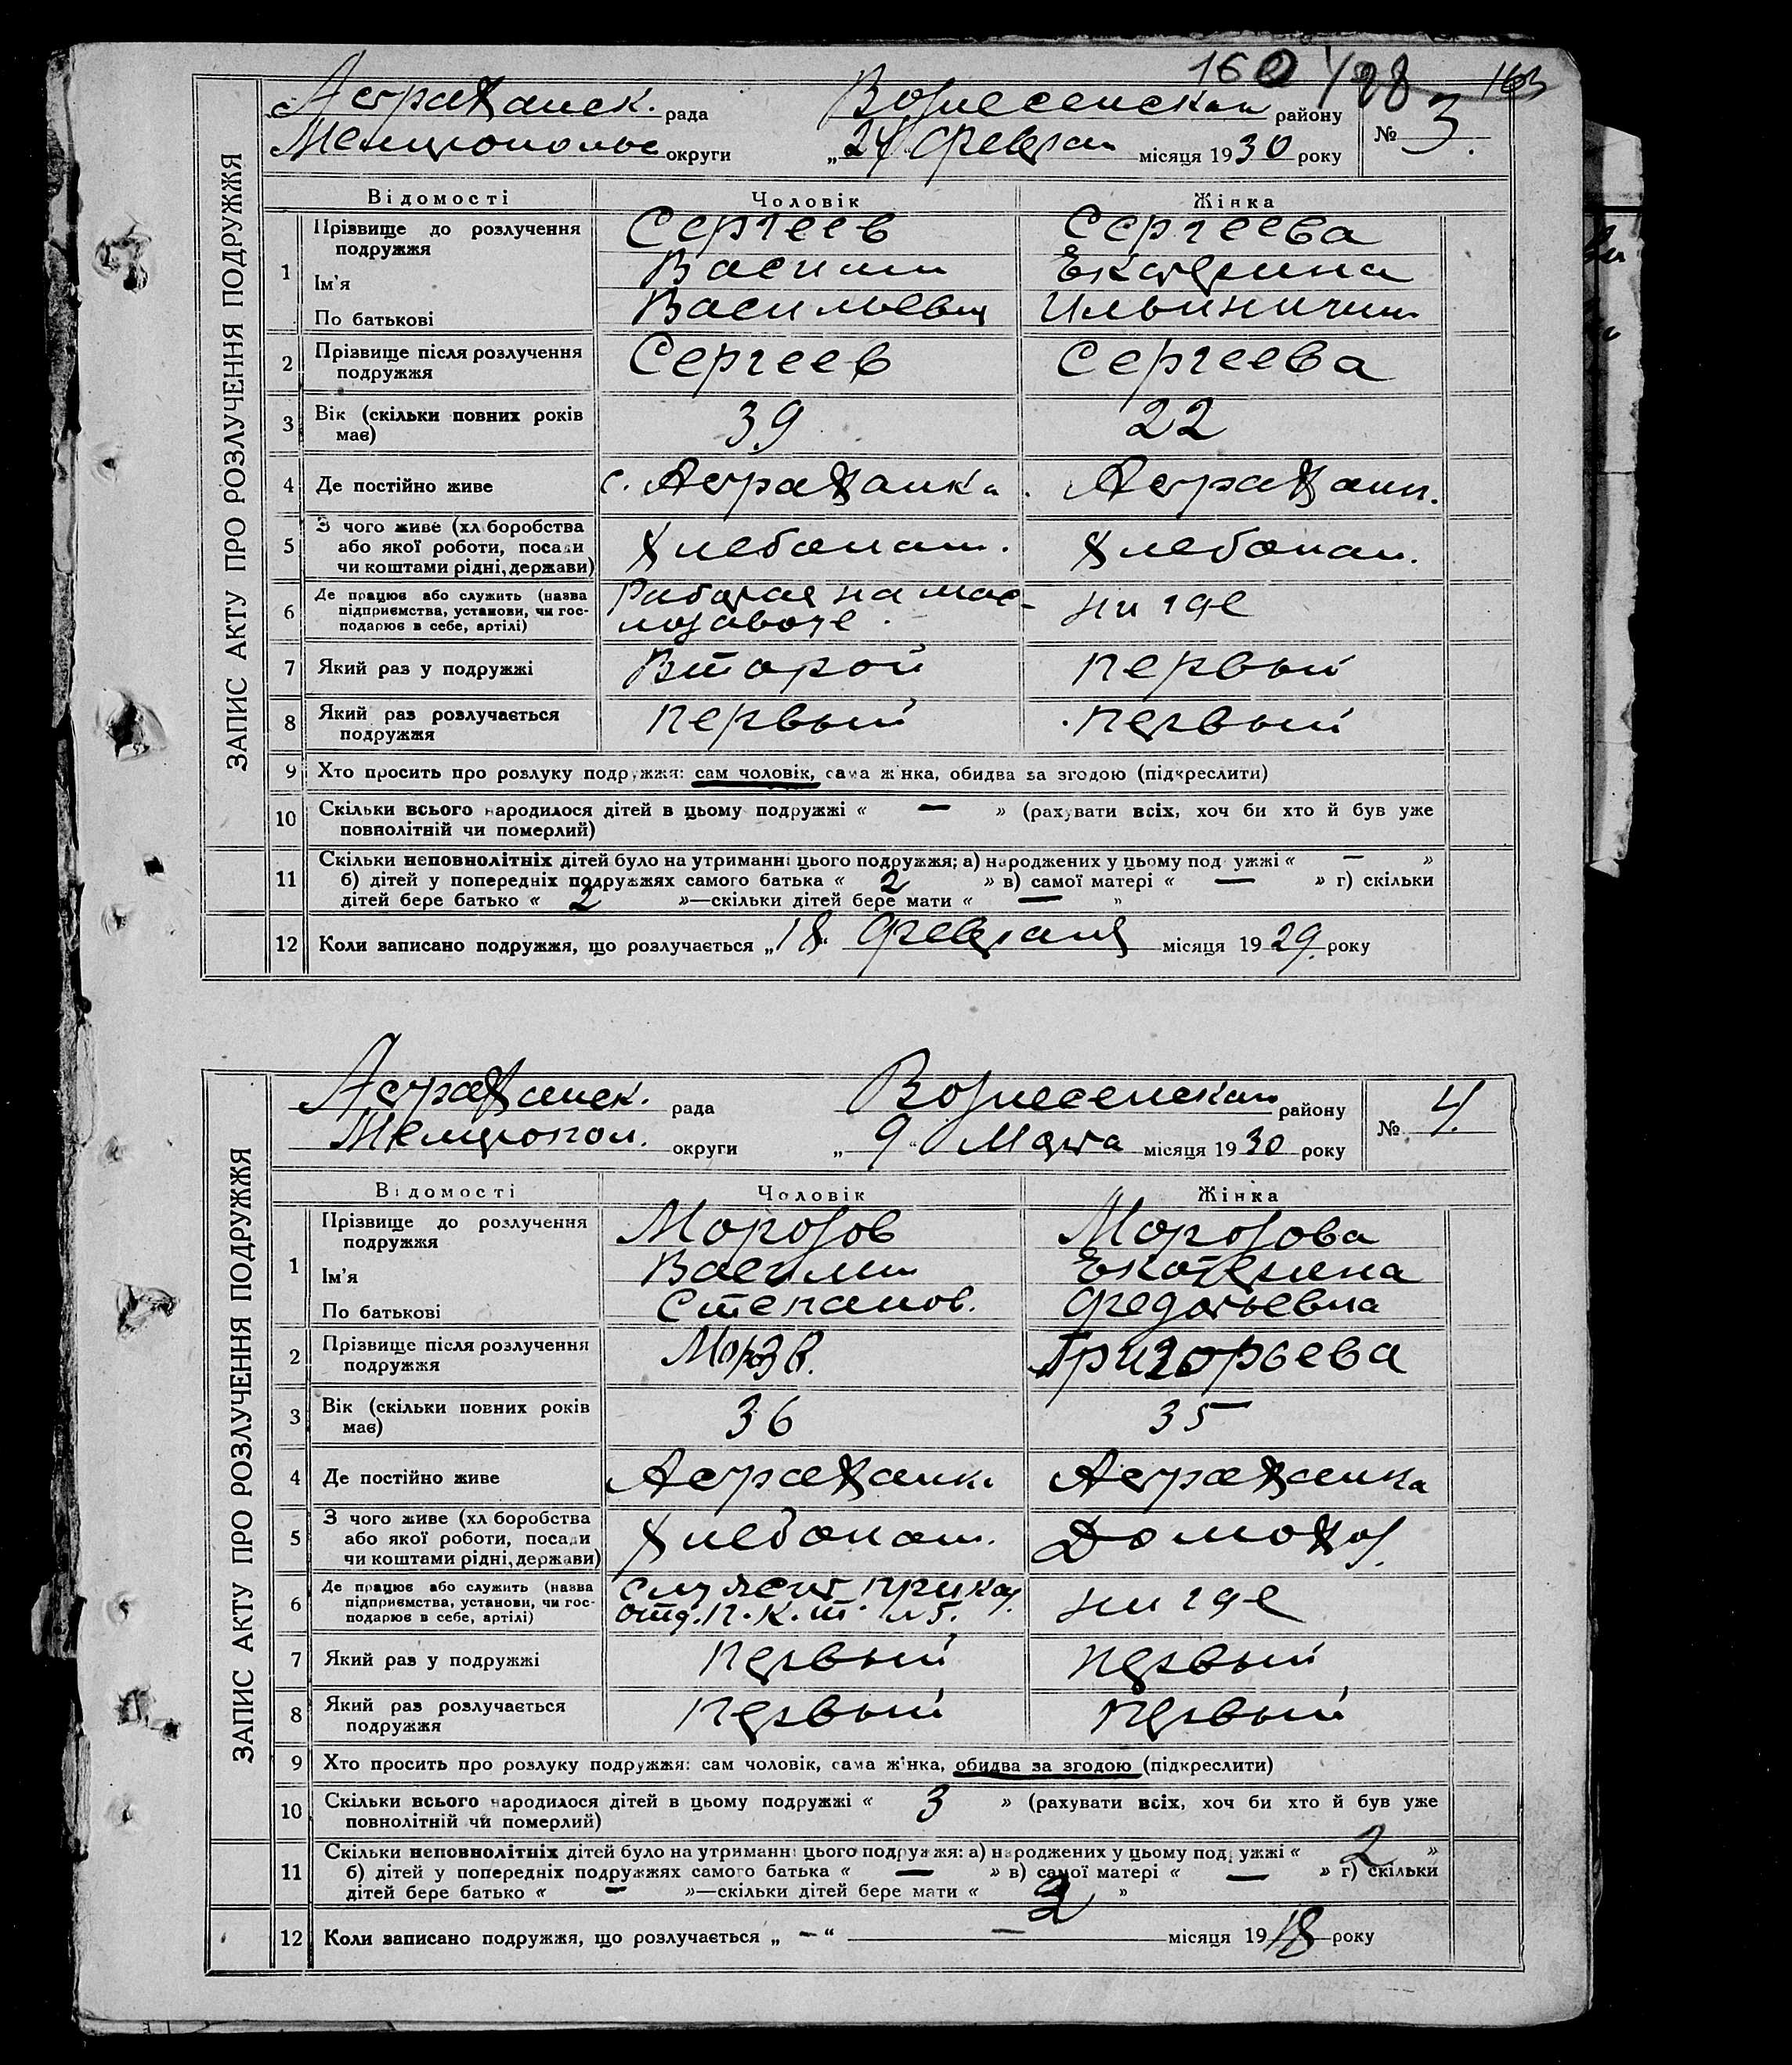 160 128 163
Астраханск. рада Вознесенскаи району № 3.
Мелитополье округи „24" Феврал місяця 1930 року
ЗАПИС АКТУ ПРО РОЗЛУЧЕННЯ ПОДРУЖЖЯ
Відомості Чоловік Жінка
1 Прізвище до розлучення подружжя Сергеев Сергеева
Ім'я Васили Екатерина
По батькові Васильевич Ильинична
2 Прізвище після розлучення подружжя Сергеев Сергеева
3 Вік (скільки повних років має) 39 22
4 Де постійно живе с. Астраханка. Астрахани.
5 З чого живе (хліборобства або якої роботи, посади чи коштами рідні, держави) Хлебопаш. Хлебопаш.
6 Де працює або служить (назва підприємства, установи, чи господарює в себе, артілі) Работая на мас-
лозаводе. нигде
7 Який раз у подружжі Второй первый
8 Який раз розлучається подружжя первый первый
9 Хто просить про розлуку подружжя: сам чоловік, сама жінка, обидва за згодою (підкреслити)
10 Скільки всього народилося дітей в цьому подружжі « — » (рахувати всіх, хоч би хто й був уже
повнолітній чи померлий)
11 Скільки неповнолітніх дітей було на утриманні цього подружжя; а) народжених у цьому подружжі « — »
б) дітей у попередніх подружжях самого батька « 2 » в) самої матері « — » г) скільки
дітей бере батько « 2 »—скільки дітей бере мати « — »
12 Коли записано подружжя, що розлучається „18" Февраля місяця 1929 року
Астраханск. рада Вознесенскаи району № 4.
Мелитопол. округи „9" Марта місяця 1930 року
ЗАПИС АКТУ ПРО РОЗЛУЧЕННЯ ПОДРУЖЖЯ
Відомості Чоловік Жінка
1 Прізвище до розлучення подружжя Морозов Морозова
Ім'я Васили Екатерина
По батькові Степанов. Федотьевна
2 Прізвище після розлучення подружжя Морозв. Григорьева
3 Вік (скільки повних років має) 36 35
4 Де постійно живе Астраханка Астраханка
5 З чого живе (хліборобства або якої роботи, посади чи коштами рідні, держави) Хлебопаш. Домохоз.
6 Де працює або служить (назва підприємства, установи, чи господарює в себе, артілі) Служит приказ.
отд. п.к.т. нигде
7 Який раз у подружжі первый первый
8 Який раз розлучається подружжя первый первый
9 Хто просить про розлуку подружжя: сам чоловік, сама жінка, обидва за згодою (підкреслити)
10 Скільки всього народилося дітей в цьому подружжі « 3 » (рахувати всіх, хоч би хто й був уже
повнолітній чи померлий)
11 Скільки неповнолітніх дітей було на утриманні цього подружжя: а) народжених у цьому подружжі « 2 »
б) дітей у попередніх подружжях самого батька « — » в) самої матері « — » г) скільки
дітей бере батько « — »—скільки дітей бере мати « 2 »
12 Коли записано подружжя, що розлучається „ — “ — місяця 1918 року